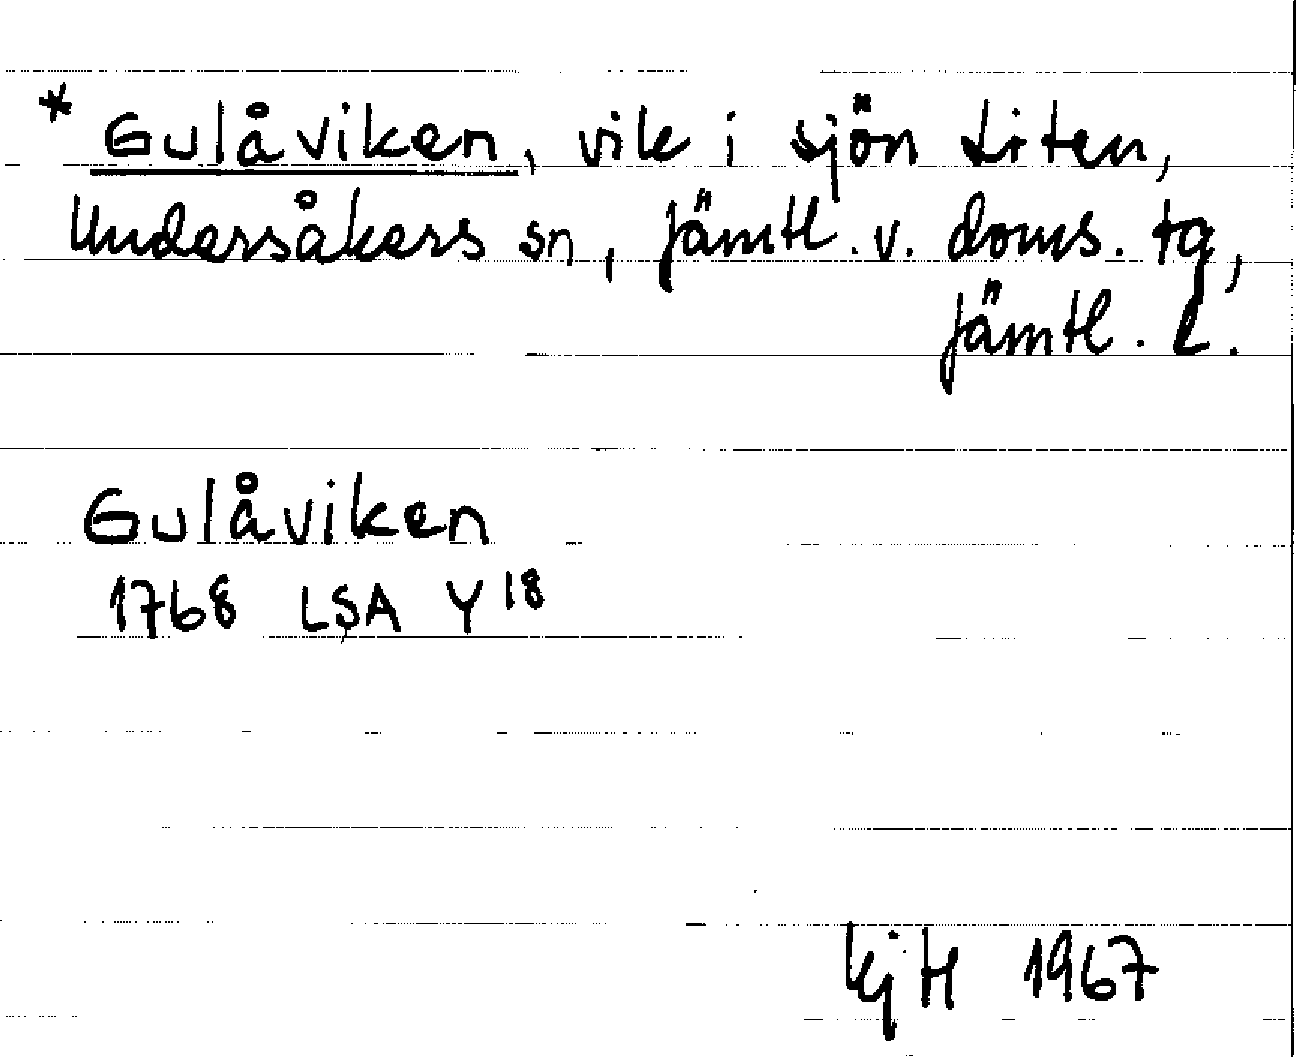 * Gulåviken, vik i sjön Liten,
Undersåkers sn, Jämtl. v. doms. tg,
Jämtl. l.
Gulåviken
1768 LSA Y 18
KjH 1967